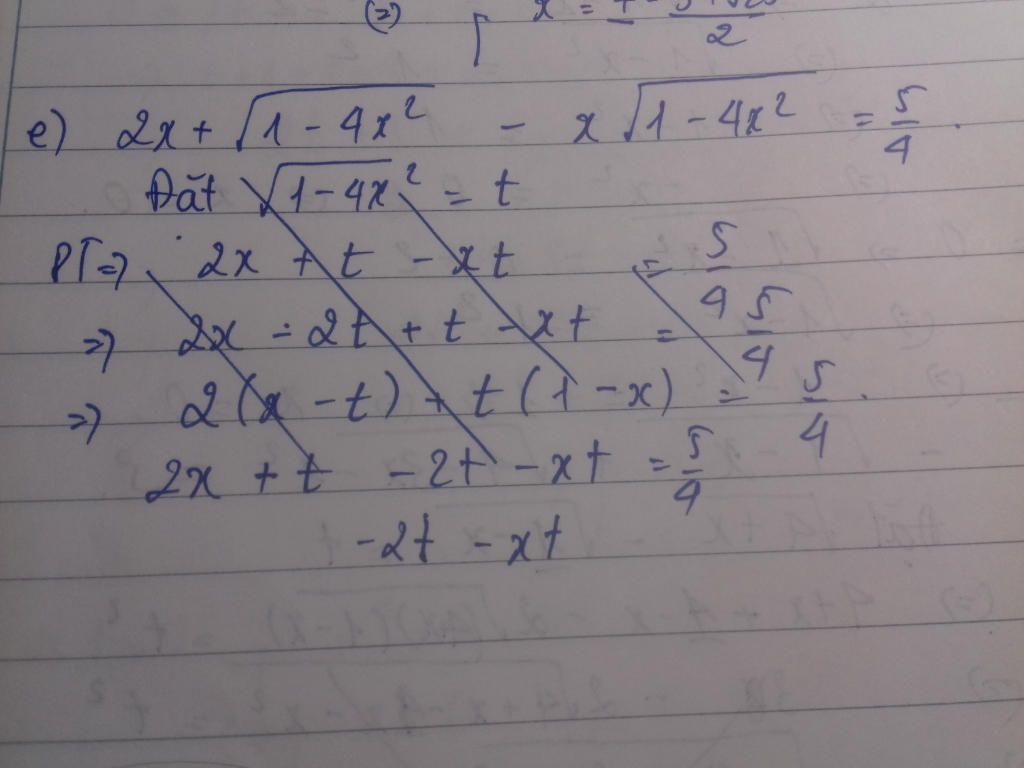 (=) x =
2
e) 2x + √(1 - 4x²) - x√(1 - 4x²) = 5/4.
Đặt √(1 - 4x²) = t
PT => 2x + t - xt = 5/4
=> 2x - 2t + t - xt = 5/4
=> 2(x - t) + t(1 - x) = 5/4.
2x + t - 2t - xt = 5/4
-2t - xt